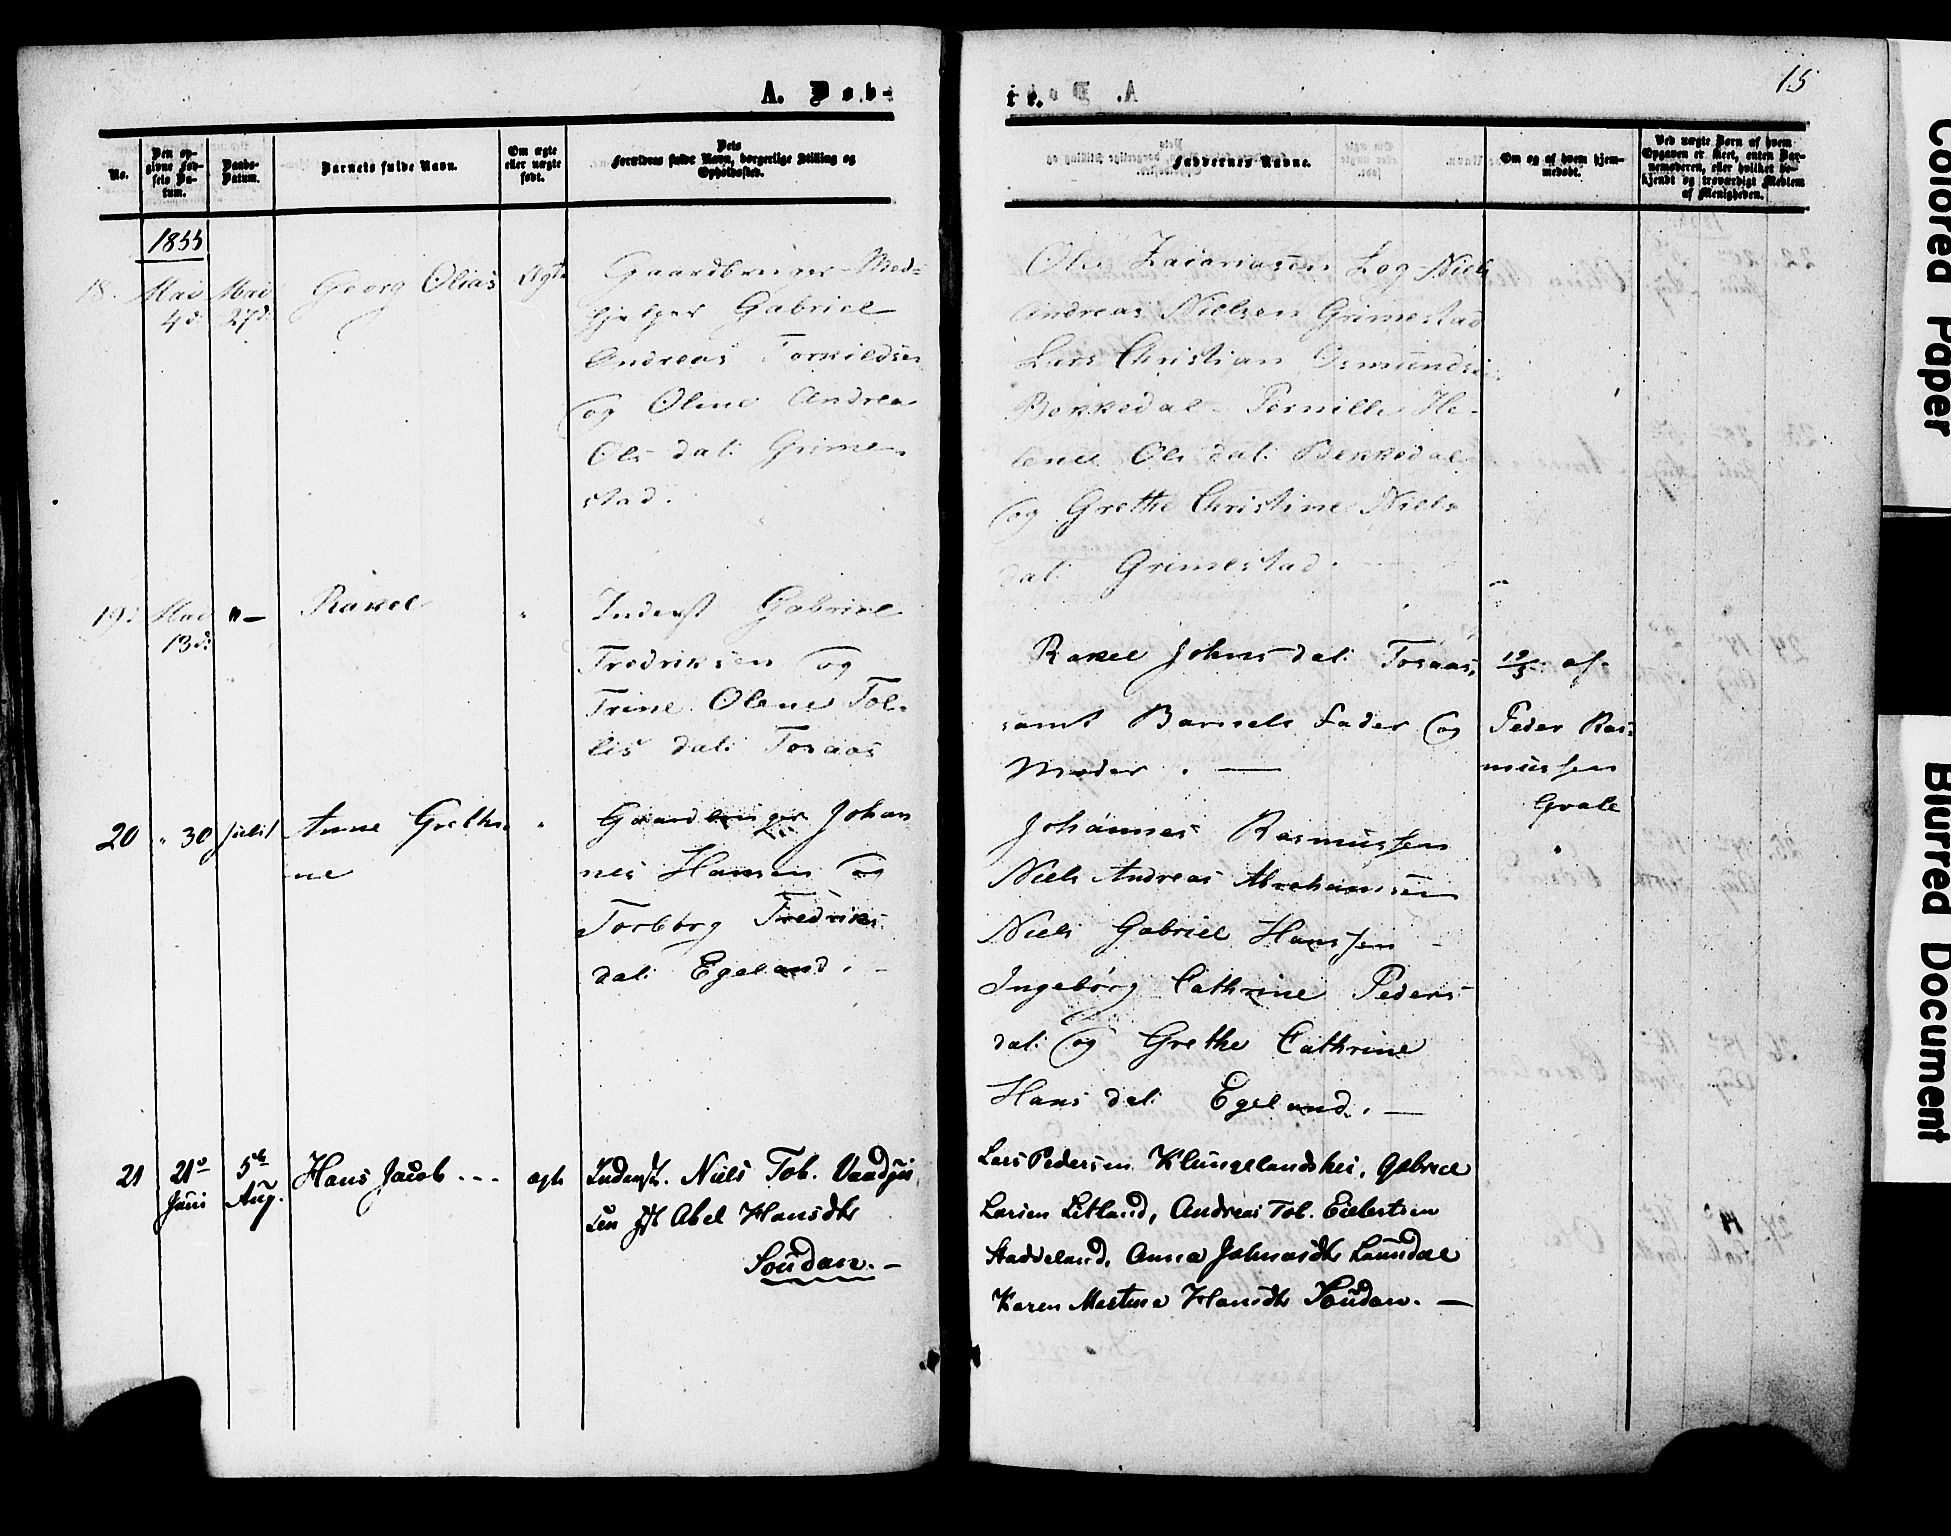 A. Døb-
te.
15
No.
Den op-
givne Fød-
sels Da-
tum.
Daabs-
Datum.
Barnets fulde Navn.
Om ægte
eller uægte
født.
Dets
Forældres fulde Navn, borgerlige Stilling og
Opholdssted.
Faddernes Navne.
Om og af hvem hjem-
medøbt.
Ved uægte Børn af hvem
Opgaven er skeet, enten Bar-
nemoderen, eller hvilket be-
kjendt og troværdigt Medlem
af Menigheden.
1855
18.
Mai
4d.
Mai
27d.
Georg Olias
Ægte
Gaardbruger-Med-
hjelper Gabriel
Andreas Torkildsen
og Oline Andrea
Ols dat: Grime-
stad.
Ole Zacariasen Log Niels
Andreas Nielsen Grimestad
Lars Christian Osmundsen
Bekkedal- Pernille He-
lene Ols dat: Bekkedal
og Grethe Christine Niels
dat: Grimestad.
19d.
Mai
13d:
"—
Rakel
"
Inderst Gabriel
Fredriksen og
Trine Olene Tol-
lis dat: Tosaas
Rakel Johns dat: Tosaas,
samt Barnets Fader og
Moder. —
19/5 af
Peder Ras-
mussen
Qvale
20
" 30
Juli 1
Anne Grethe-
ne
"
Gaardbruger Johan
nes Hansen og
Torborg Fredriks
dat: Egeland. -
Johannes Rasmussen
Niels Andreas Abrahamsen
Niels Gabriel Hanssen -
Ingebørg Cathrine Peders
dat: og Grethe Cathrine
Hans dat: Egeland. —
"
21
21de
Juni
5te
Aug.
Hans Jacob ...
ægte
Inderst. Niels Tob.
sen Abel Hansdtr
Soudan. -
Lars Pedersen Klungelandshei, Gabriel
Larsen Litland, Andreas Tob. Eilertsen
Staddeland, Anna Johnasdtr Laundal
Karen Martine Hansdtr Soudan. —
Colored Paper
Blurred Document